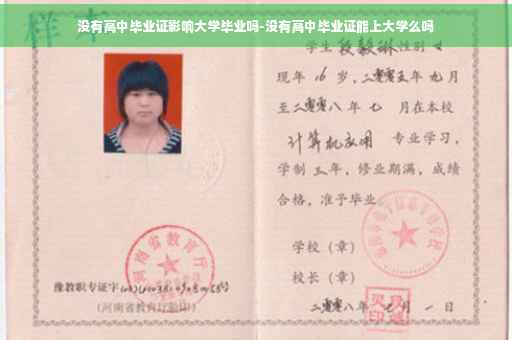 没有高中毕业证影响大学毕业吗-没有高中毕业证能上大学么吗
样本
学生段毅琳性别女
现年16岁，二零零五年九月
至二零零八年七月在本校
计算机应用专业学习，
学制三年，修业期满，成绩
合格，准予毕业。
学校（章）
校长（章）
二零零八年七月一日
河南省教育厅
豫教职专证字
（河南省教育厅验印）